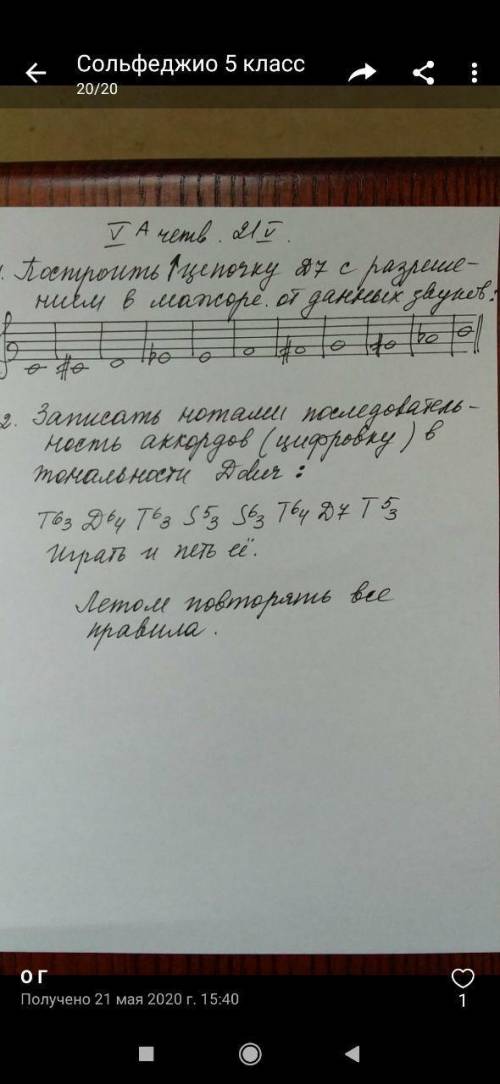 Сольфеджио 5 класс
20/20
V А четв. 21 V.
1. Построить ↑ цепочку D7 с разреше-
нием в мажоре от данных звуков:
2. Записать нотами последователь-
ность аккордов (цифровку) в
тональности D dur:
T63 D64 T63 S53 S63 T64 D7 T53
Играть и петь её.
Летом повторять все
правила.
О Г
Получено 21 мая 2020 г. 15:40
1